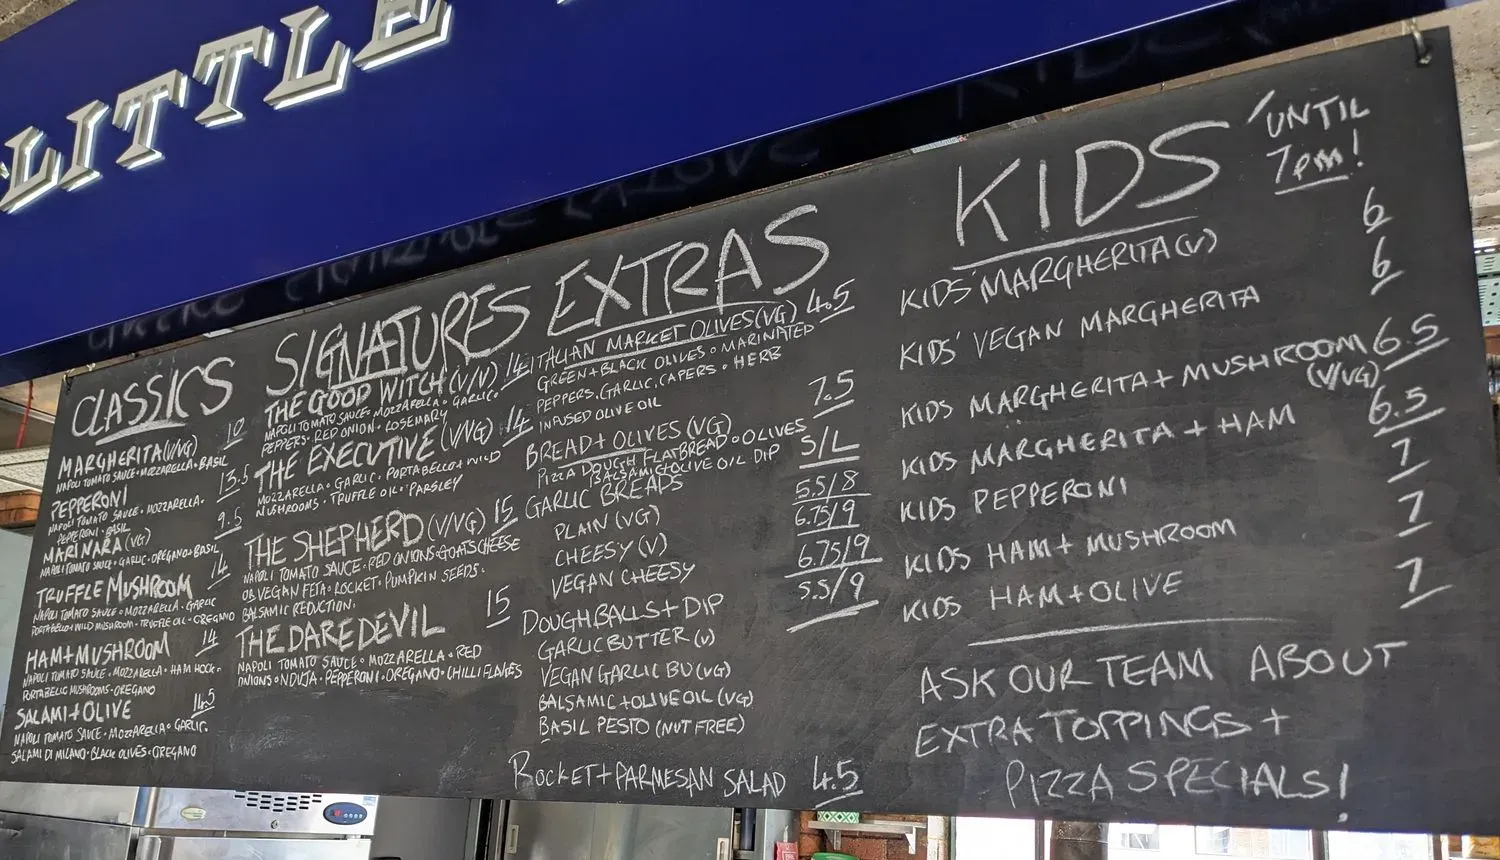 LITTLE
CLASSICS
MARGHERITA (V/VG) 10
NAPOLI TOMATO SAUCE • MOZZARELLA • BASIL
PEPPERONI 13.5
NAPOLI TOMATO SAUCE • MOZZARELLA •
PEPPERONI • BASIL
MARINARA (VG) 9.5
NAPOLI TOMATO SAUCE • GARLIC • OREGANO + BASIL
TRUFFLE MUSHROOM 14
NAPOLI TOMATO SAUCE • MOZZARELLA • GARLIC
PORTABELLO + WILD MUSHROOM • TRUFFLE OIL • OREGANO
HAM + MUSHROOM 14
NAPOLI TOMATO SAUCE • MOZZARELLA • HAM HOCK •
PORTABELLO MUSHROOMS • OREGANO
SALAMI + OLIVE 14.5
NAPOLI TOMATO SAUCE • MOZZARELLA • GARLIC •
SALAMI DI MILANO • BLACK OLIVES • OREGANO
SIGNATURES
THE GOOD WITCH (V/V) 14
NAPOLI TOMATO SAUCE • MOZZARELLA • GARLIC •
PEPPERS • RED ONION • ROSEMARY
THE EXECUTIVE (V/VG) 14
MOZZARELLA • GARLIC • PORTABELLO + WILD
MUSHROOMS • TRUFFLE OIL • PARSLEY
THE SHEPHERD (V/VG) 15
NAPOLI TOMATO SAUCE • RED ONIONS • GOATS CHEESE
OR VEGAN FETA • ROCKET • PUMPKIN SEEDS •
BALSAMIC REDUCTION.
THE DAREDEVIL 15
NAPOLI TOMATO SAUCE • MOZZARELLA • RED
ONIONS • NDUJA • PEPPERONI • OREGANO • CHILLI FLAKES
EXTRAS
ITALIAN MARKET OLIVES (VG) 4.5
GREEN + BLACK OLIVES • MARINATED
PEPPERS, GARLIC, CAPERS • HERB
INFUSED OLIVE OIL
BREAD + OLIVES (VG) 7.5
PIZZA DOUGH FLATBREAD • OLIVES
BALSAMIC + OLIVE OIL DIP
GARLIC BREADS S/L
PLAIN (VG) 5.5/8
CHEESY (V) 6.75/9
VEGAN CHEESY 6.75/9
DOUGHBALLS + DIP 5.5/9
GARLIC BUTTER (V)
VEGAN GARLIC BU (VG)
BALSAMIC + OLIVE OIL (VG)
BASIL PESTO (NUT FREE)
ROCKET + PARMESAN SALAD 4.5
KIDS 'UNTIL
7pm!
KIDS' MARGHERITA (V) 6
KIDS' VEGAN MARGHERITA 6
KIDS MARGHERITA + MUSHROOM 6.5
(V/VG)
KIDS MARGHERITA + HAM 6.5
KIDS PEPPERONI 7
KIDS HAM + MUSHROOM 7
KIDS HAM + OLIVE 7
ASK OUR TEAM ABOUT
EXTRA TOPPINGS +
PIZZA SPECIALS!